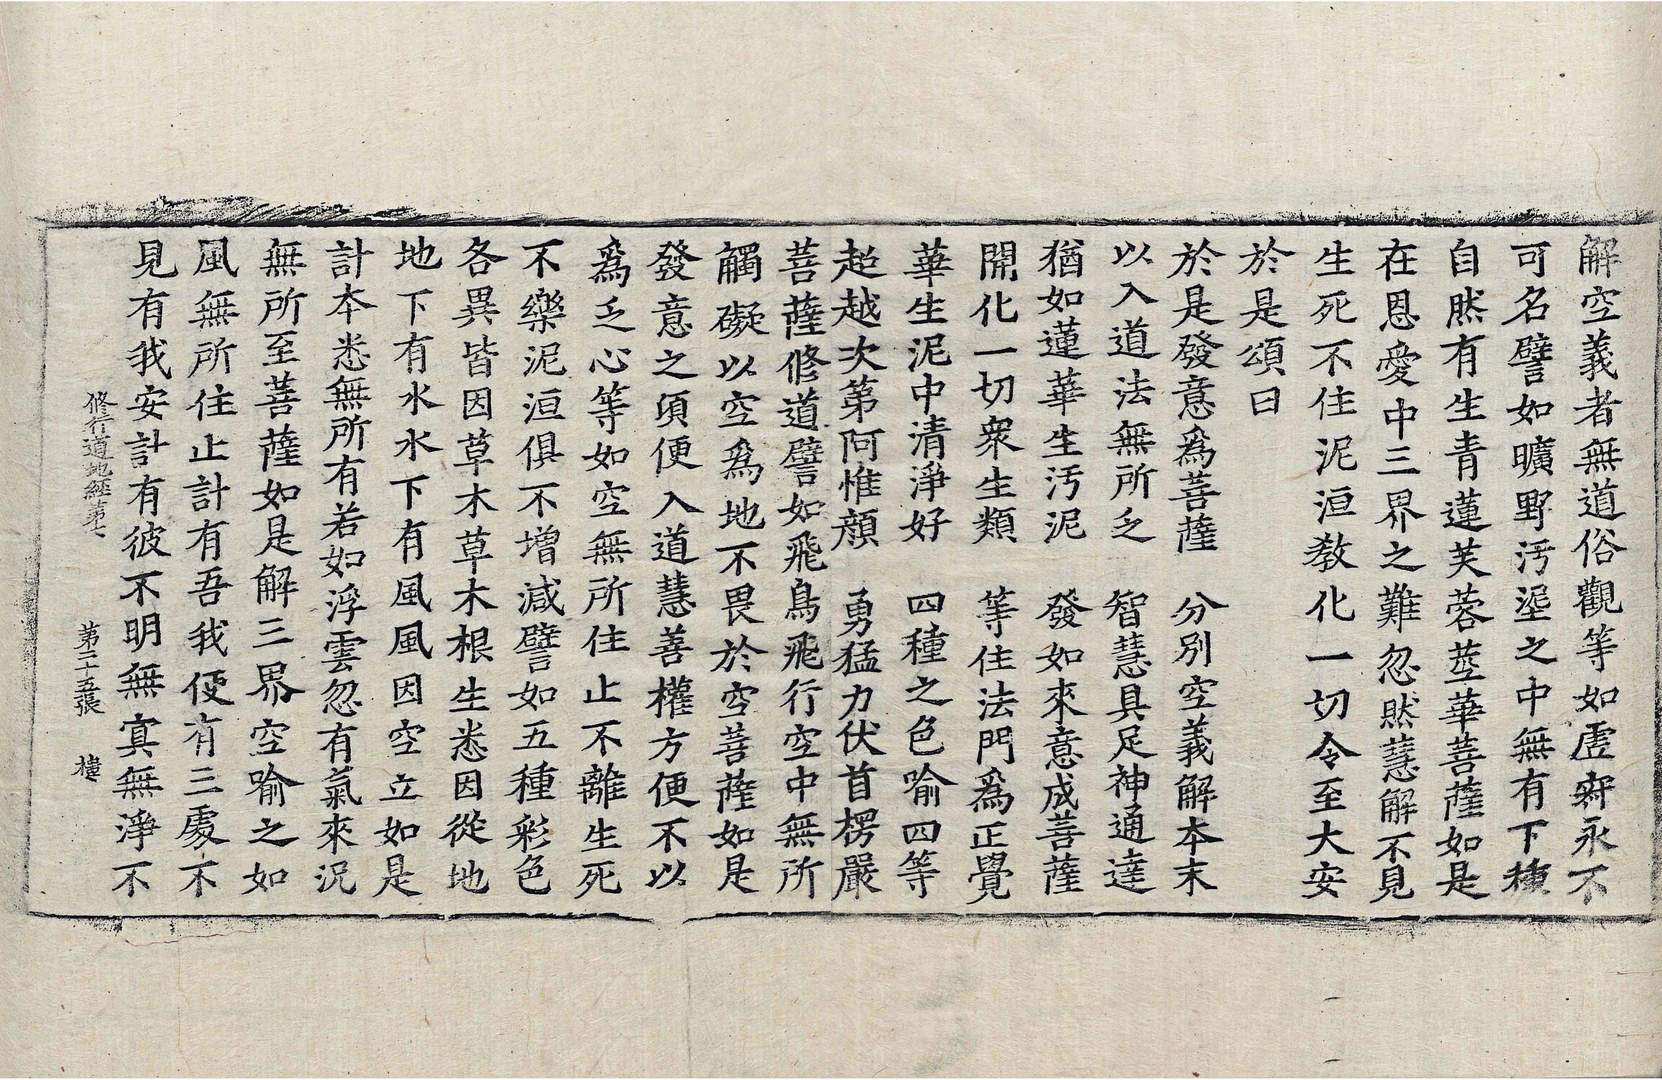 解空義者無道俗觀等如虛空永不
可名譬如曠野汚埿之中無有下種
自然有生青蓮芙蓉莖華菩薩如是
在恩愛中三界之難忽然慧解不見
生死不住泥洹教化一切令至大安
於是頌曰
於是發意爲菩薩　分別空義解本末
以入道法無所乏　智慧具足神通達
猶如蓮華生汚泥　發如來意成菩薩
開化一切衆生類　等住法門爲正覺
華生泥中清淨好　四種之色喻四等
超越次第阿惟顔　勇猛力伏首楞嚴
菩薩修道譬如飛鳥飛行空中無所
觸礙以空爲地不畏於空菩薩如是
發意之須便入道慧善權方便不以
爲乏心等如空無所住止不離生死
不樂泥洹俱不增減譬如五種彩色
各異皆因草木草木根生悉因從地
地下有水水下有風風因空立如是
計本悉無所有若如浮雲忽有氣來況
無所至菩薩如是解三界空喻之如
風無所住止計有吾我便有三處不
見有我安計有彼不明無冥無淨不
修行道地經第七　第二十五張　樓